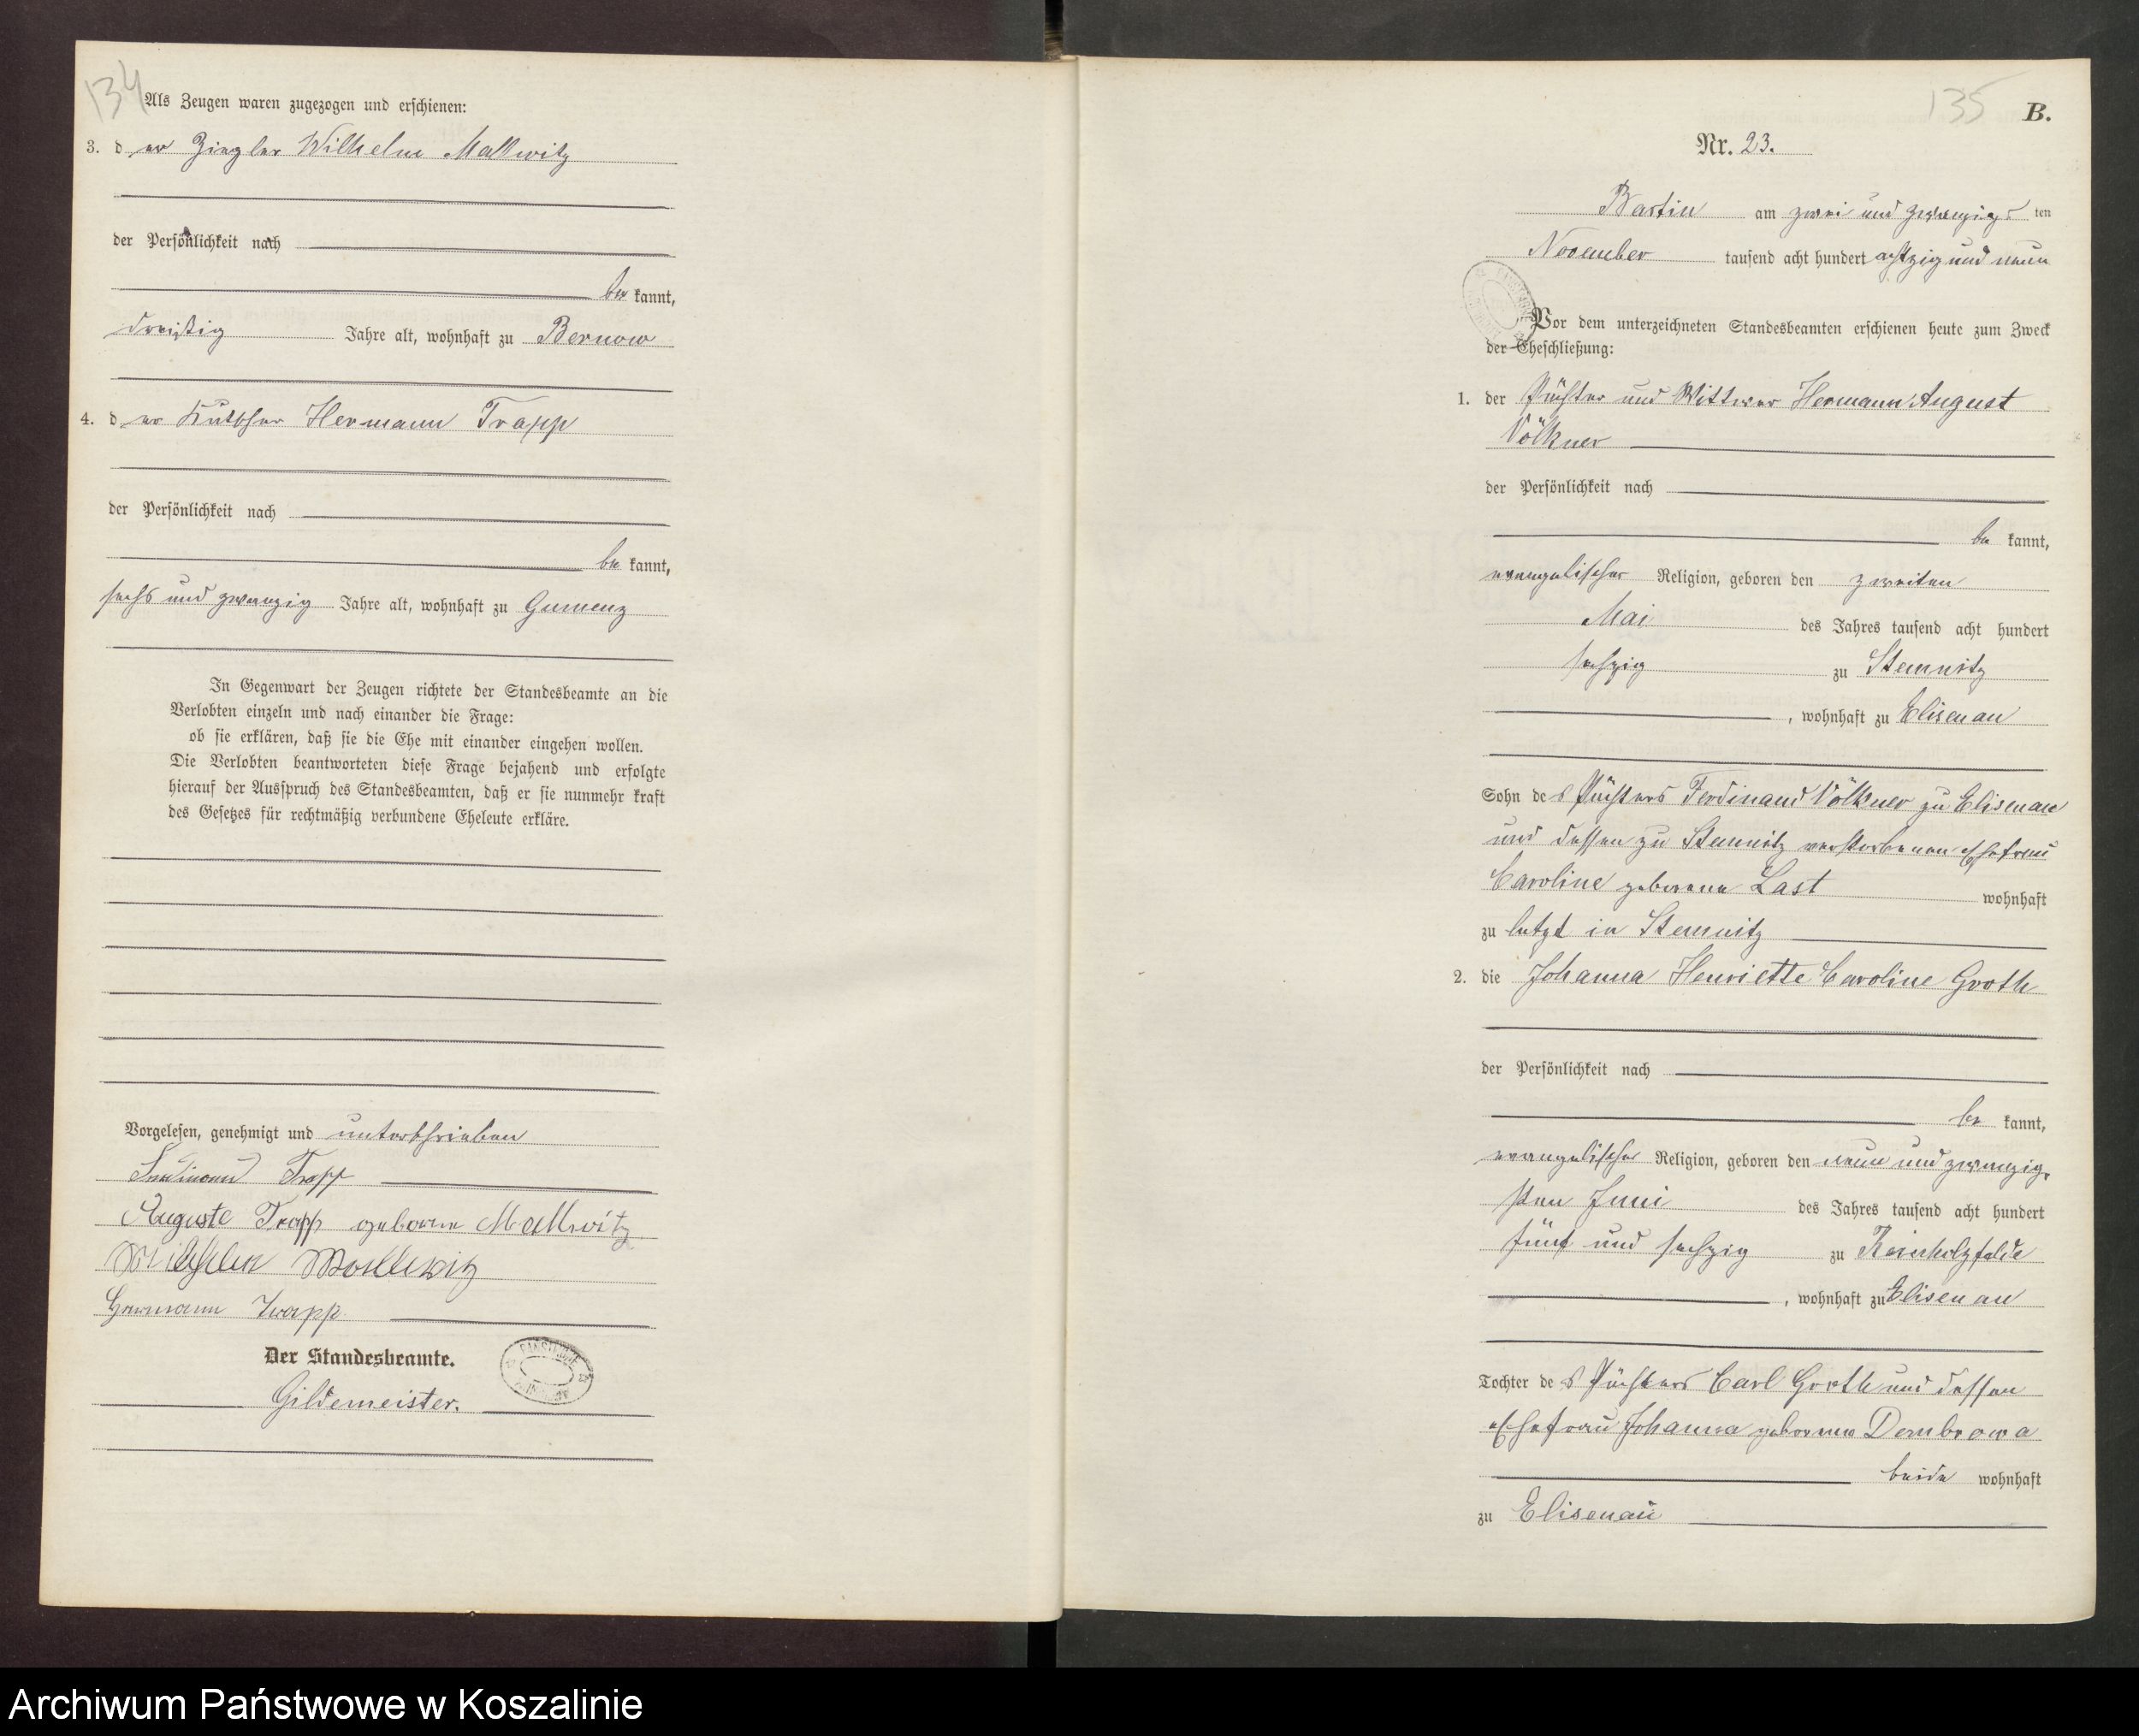 134
Als Zeugen waren zugezogen und erschienen:
3. der Ziegler Wilhelm Mallwitz
der Persönlichkeit nach
be kannt,
dreißig Jahre alt, wohnhaft zu Bernow
4. der Kutscher Hermann Trapp
der Persönlichkeit nach
be kannt,
sechs und zwanzig Jahre alt, wohnhaft zu Gumenz
In Gegenwart der Zeugen richtete der Standesbeamte an die
Verlobten einzeln und nach einander die Frage:
ob sie erklären, daß sie die Ehe mit einander eingehen wollen.
Die Verlobten beantworteten diese Frage bejahend und erfolgte
hierauf der Ausspruch des Standesbeamten, daß er sie nunmehr kraft
des Gesetzes für rechtmäßig verbundene Eheleute erkläre.
Vorgelesen, genehmigt und unterschrieben
Ferdinand Trapp
Auguste Trapp geborene Mallwitz
Wilhelm Mallwitz
Hermann Trapp
Der Standesbeamte.
Gildemeister.
135
B.
Nr. 23.
Bartin am zwei und zwanzigsten
November tausend acht hundert achtzig und neun
Vor dem unterzeichneten Standesbeamten erschienen heute zum Zweck
der Eheschließung:
1. der Pächter und Wittwer Hermann August
Völkner
der Persönlichkeit nach
be kannt,
evangelischer Religion, geboren den zweiten
Mai des Jahres tausend acht hundert
sechzig zu Stemnitz
, wohnhaft zu Elisenau
Sohn des Pächters Ferdinand Völkner zu Elisenau
und dessen zu Stemnitz verstorbenen Ehefrau
Caroline geborene Last wohnhaft
zu letzt in Stemnitz
2. die Johanna Henriette Caroline Groth
der Persönlichkeit nach
be kannt,
evangelischer Religion, geboren den neun und zwanzig-
sten Juni des Jahres tausend acht hundert
fünf und sechzig zu Reinholzfelde
, wohnhaft zu Elisenau
Tochter des Pächters Carl Groth und dessen
Ehefrau Johanna geborene Dembrowa
beide wohnhaft
zu Elisenau
Archiwum Państwowe w Koszalinie